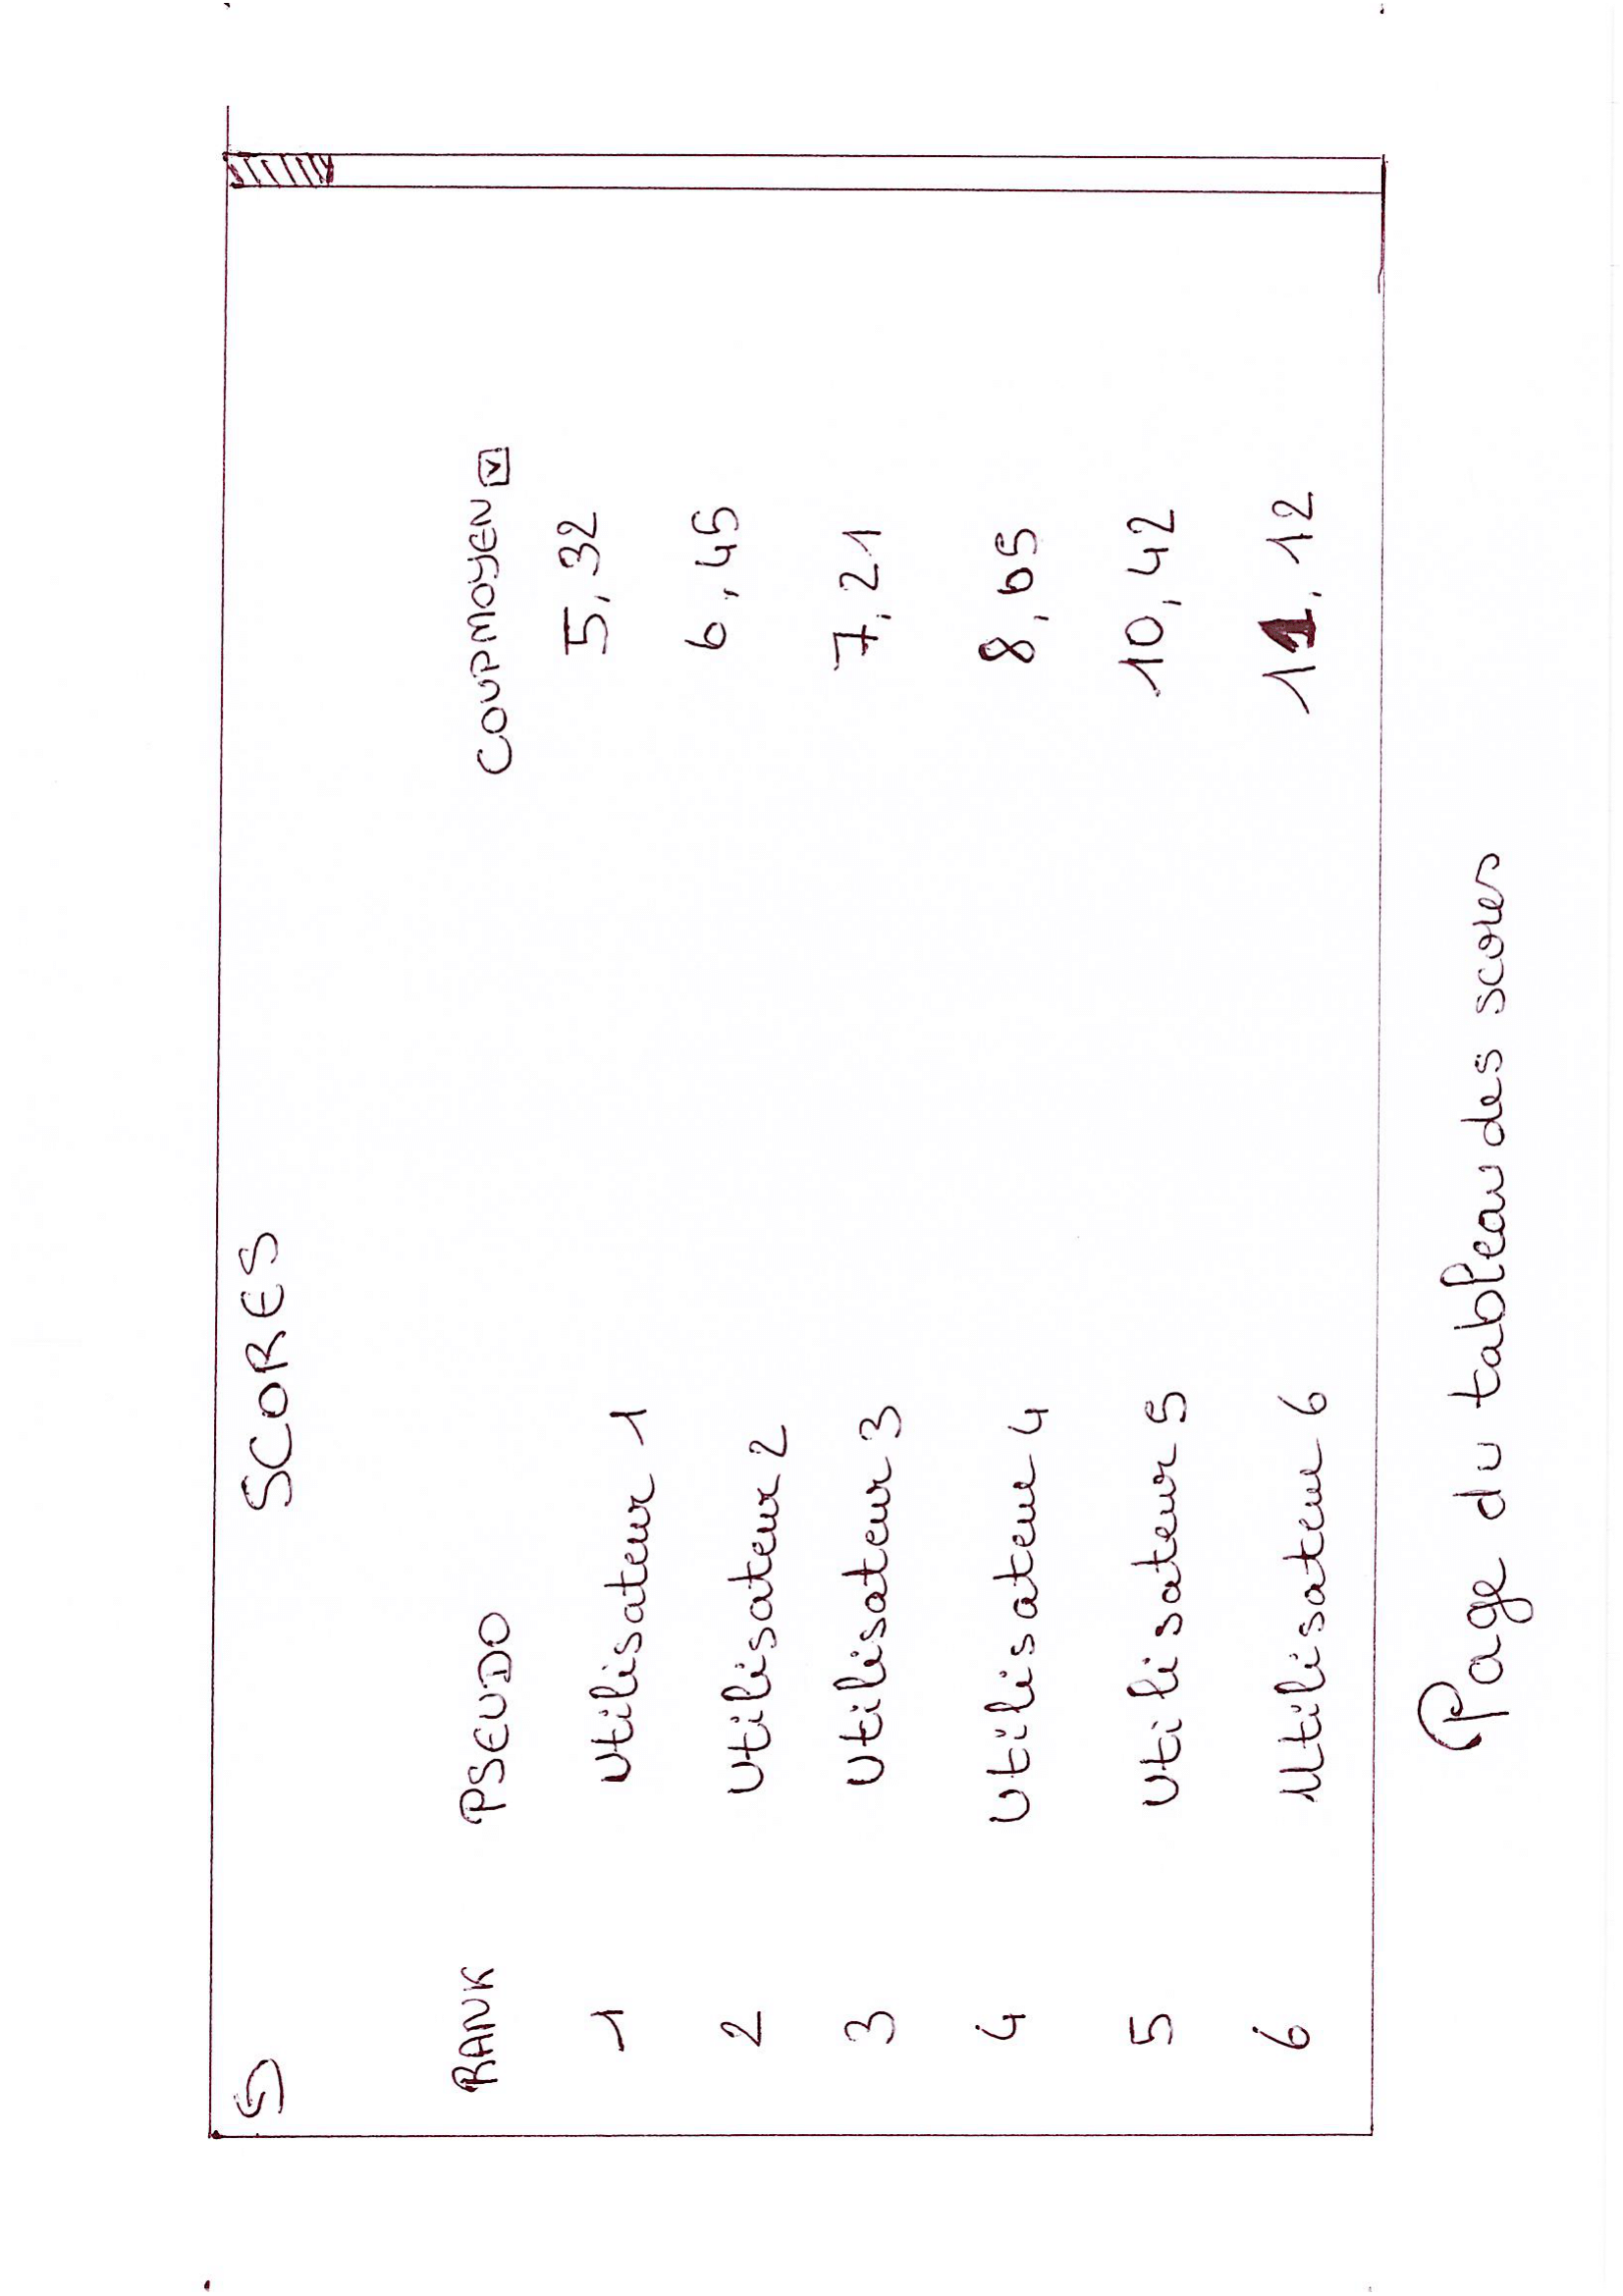 SCORES
RANK PSEUDO COUPMOYEN
1 Utilisateur 1 5,32
2 Utilisateur 2 6,45
3 Utilisateur 3 7,21
4 Utilisateur 4 8,65
5 Utilisateur 5 10,42
6 Utilisateur 6 11,12
Page du tableau des scores